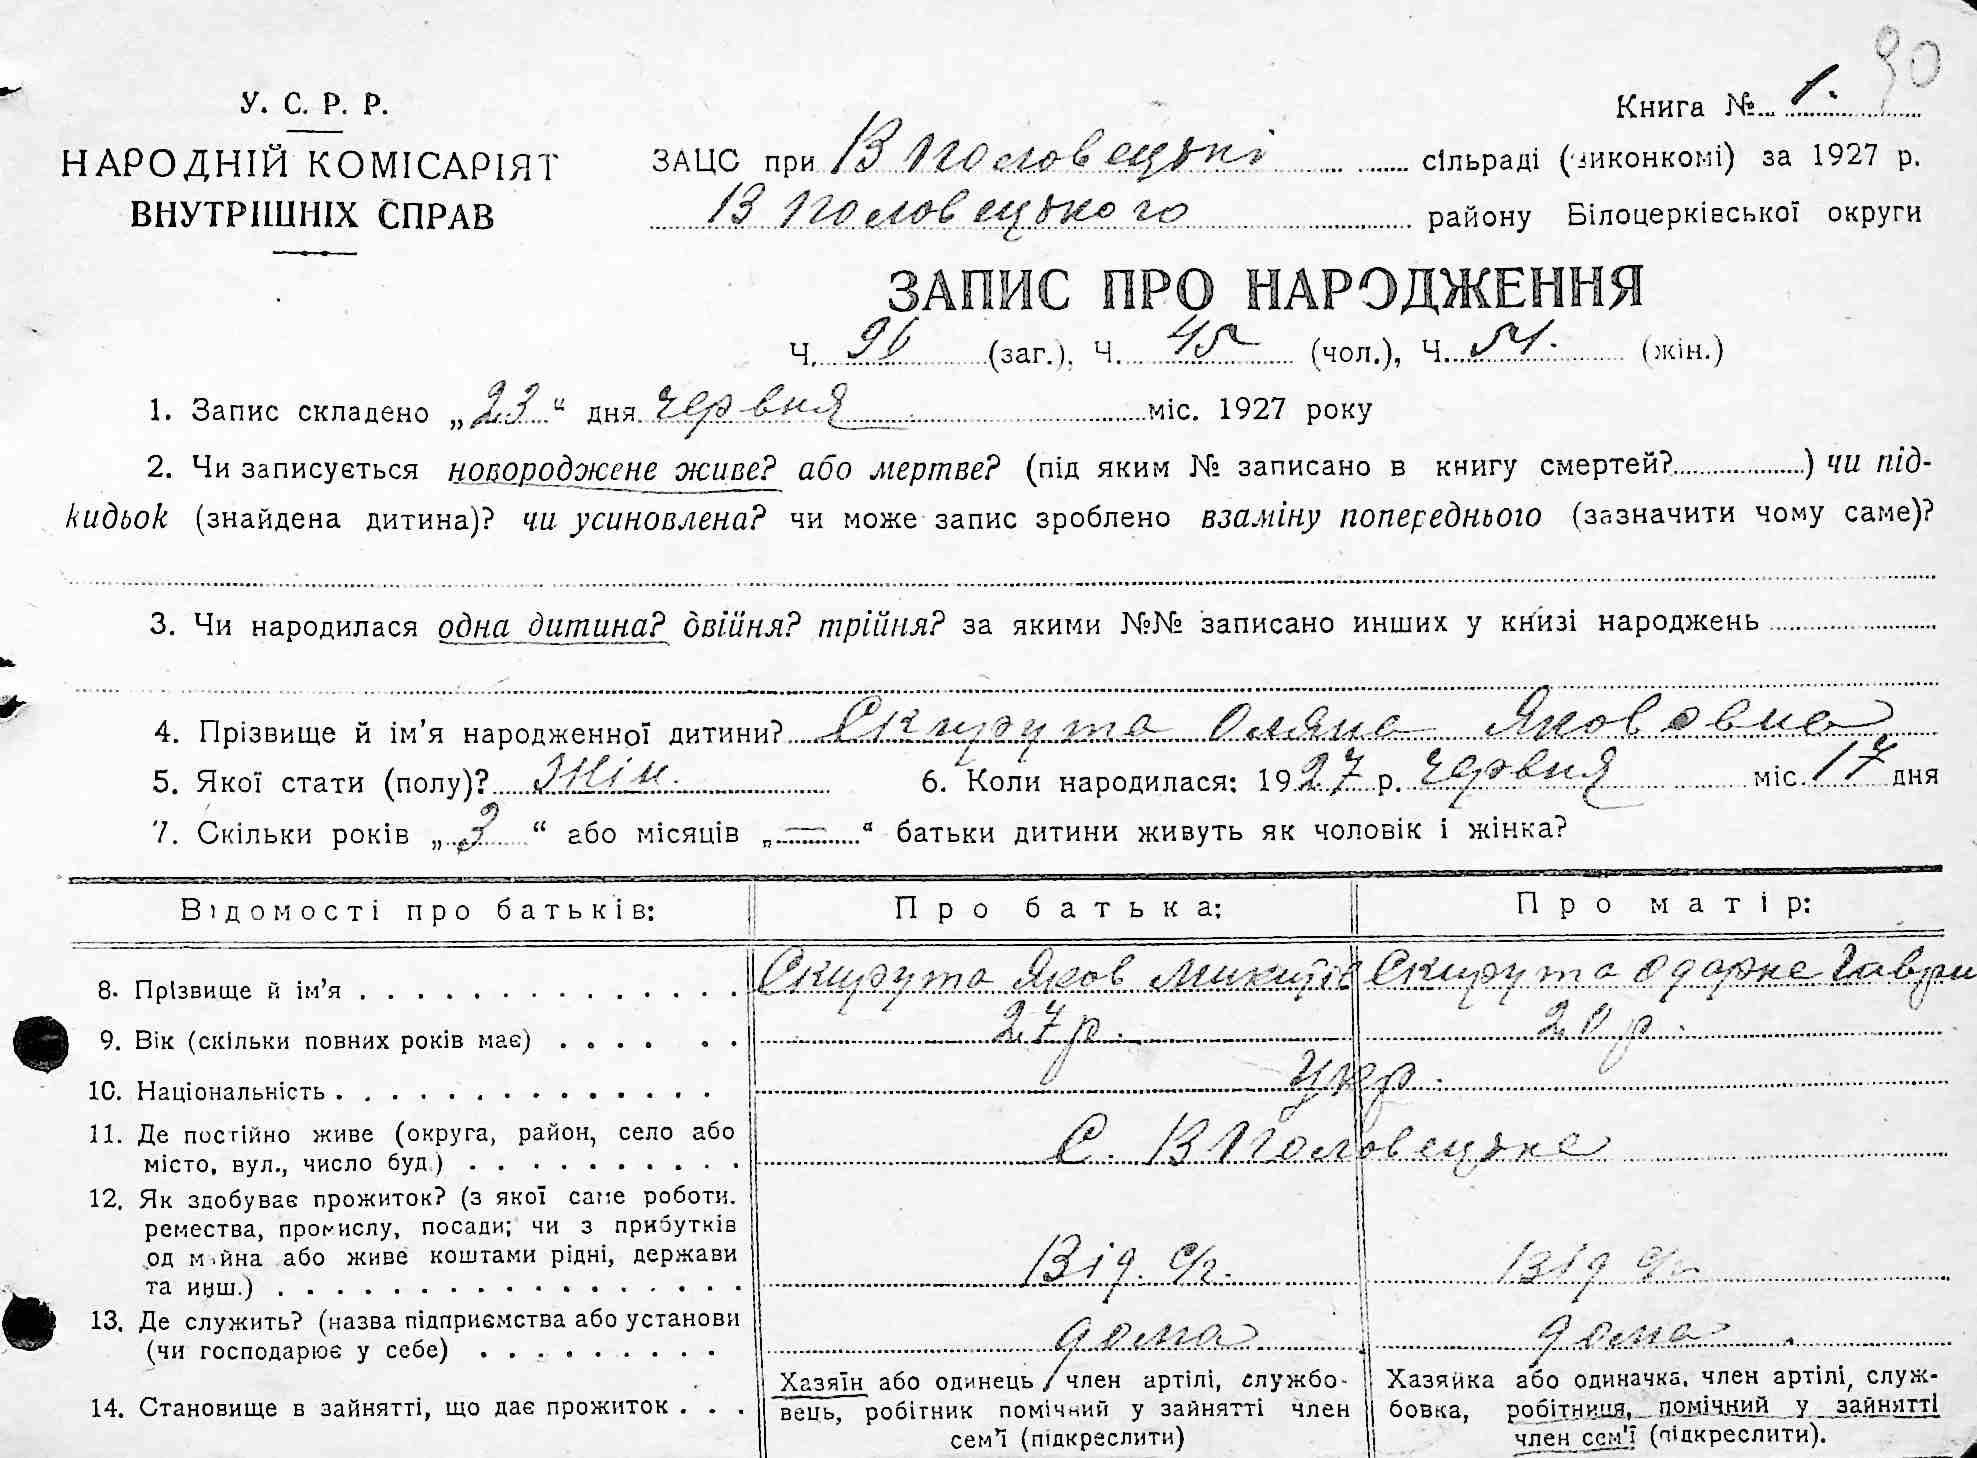 90
Книга № 1.
У. С. Р. Р.
НАРОДНІЙ КОМІСАРІЯТ
ВНУТРІШНІХ СПРАВ
ЗАЦС при В Половецькі сільраді (виконкомі) за 1927 р.
В Половецького району Білоцерківської округи
ЗАПИС ПРО НАРОДЖЕННЯ
Ч. 96 (заг.), Ч. 45 (чол.), Ч. 51. (жін.)
1. Запис складено „23“ дня червня міс. 1927 року
2. Чи записується новороджене живе? або мертве? (під яким № записано в книгу смертей?) чи під-
кидьок (знайдена дитина)? чи усиновлена? чи може запис зроблено взаміну попереднього (зазначити чому саме)?
3. Чи народилася одна дитина? двійня? трійня? за якими №№ записано инших у книзі народжень
4. Прізвище й ім’я народженної дитини? Скирута Оляна Якововна
5. Якої стати (полу)? жін. 6. Коли народилася: 1927 р. червня міс. 17 дня
7. Скільки років „3“ або місяців „—“ батьки дитини живуть як чоловік і жінка?
Відомості про батьків: Про батька: Про матір:
8. Прізвище й ім’я . . . . . . . . . . . . . . Скирута Яков Микитів Скирута Одарка Гаври
9. Вік (скільки повних років має) . . . . . . 27 р. 20 р.
10. Національність . . . . . . . . . . . . . . укр.
11. Де постійно живе (округа, район, село або
місто, вул., число буд.) . . . . . . . . . . С. В Половецьке
12. Як здобуває прожиток? (з якої саме роботи.
ремества, промислу, посади; чи з прибутків
од майна або живе коштами рідні, держави
та инш.) . . . . . . . . . . . . . . . . . Від. с/г. Від с/г
13. Де служить? (назва підприємства або установи
(чи господарює у себе) . . . . . . . . . дома дома
14. Становище в зайнятті, що дає прожиток . . .
Хазяїн або одинець, член артілі, службо-
вець, робітник помічний у зайнятті член
сем’ї (підкреслити)
Хазяйка або одиначка, член артілі, служ-
бовка, робітниця, помічний у зайнятті
член сем’ї (підкреслити).